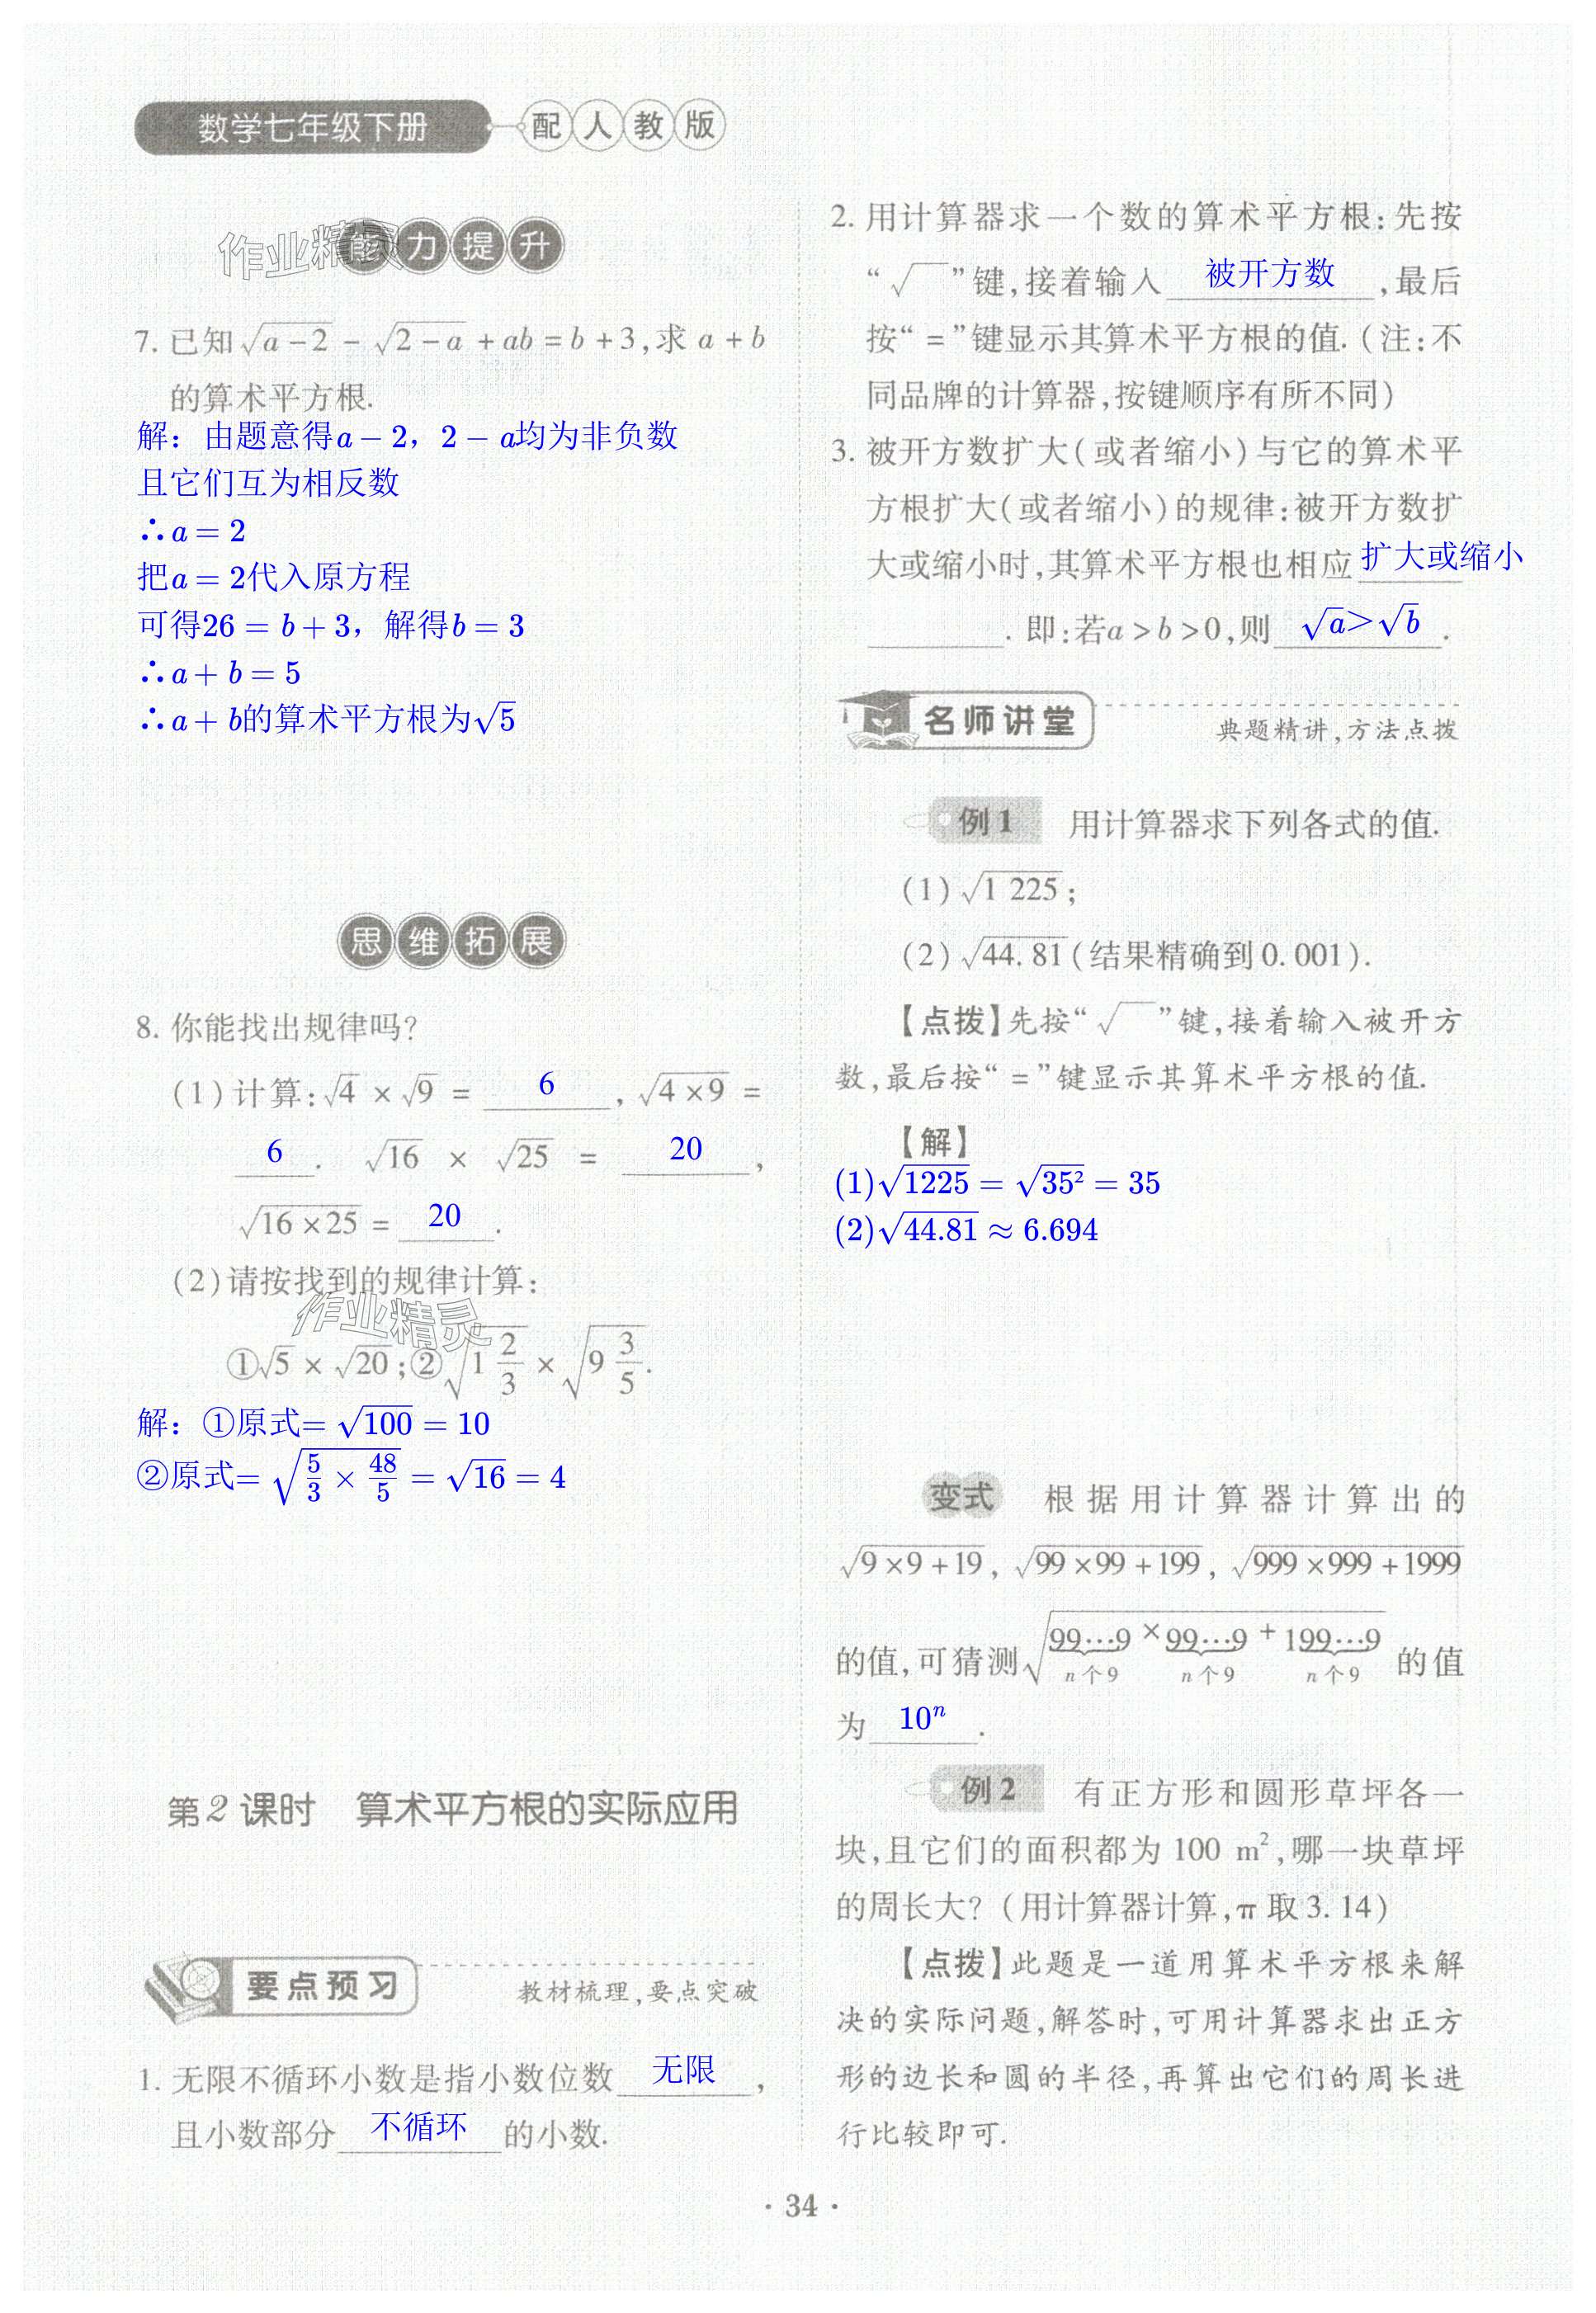 数学七年级下册 配人教版
作业精灵
能力提升
7. 已知√(a-2) - √(2-a) + ab = b + 3,求 a + b
的算术平方根.
解：由题意得a − 2，2 − a均为非负数
且它们互为相反数
∴a = 2
把a = 2代入原方程
可得26 = b + 3，解得b = 3
∴a + b = 5
∴a + b的算术平方根为√5
思维拓展
8. 你能找出规律吗?
(1)计算:√4 × √9 = 6 , √(4×9) =
6 . √16 × √25 = 20 ,
√(16×25) = 20 .
(2)请按找到的规律计算:
作业精灵
①√5 × √20;②√(1 2/3) × √(9 3/5).
解：①原式= √100 = 10
②原式= √(5/3 × 48/5) = √16 = 4
第2课时 算术平方根的实际应用
要点预习 教材梳理,要点突破
1. 无限不循环小数是指小数位数 无限 ,
且小数部分 不循环 的小数.
2. 用计算器求一个数的算术平方根:先按
“√ ”键,接着输入 被开方数 ,最后
按“=”键显示其算术平方根的值.(注:不
同品牌的计算器,按键顺序有所不同)
3. 被开方数扩大(或者缩小)与它的算术平
方根扩大(或者缩小)的规律:被开方数扩
大或缩小时,其算术平方根也相应 扩大或缩小
. 即:若a > b > 0,则 √a>√b .
名师讲堂 典题精讲,方法点拨
例1 用计算器求下列各式的值.
(1)√1 225;
(2)√44.81(结果精确到0.001).
【点拨】先按“√ ”键,接着输入被开方
数,最后按“=”键显示其算术平方根的值.
【解】
(1)√1225 = √35² = 35
(2)√44.81 ≈ 6.694
变式 根据用计算器计算出的
√(9×9+19), √(99×99+199), √(999×999+1999)
的值,可猜测√(99…9 × 99…9 + 199…9) 的值
n个9 n个9 n个9
为 10ⁿ .
例2 有正方形和圆形草坪各一
块,且它们的面积都为 100 m²,哪一块草坪
的周长大?(用计算器计算,π取3.14)
【点拨】此题是一道用算术平方根来解
决的实际问题,解答时,可用计算器求出正方
形的边长和圆的半径,再算出它们的周长进
行比较即可.
· 34 ·